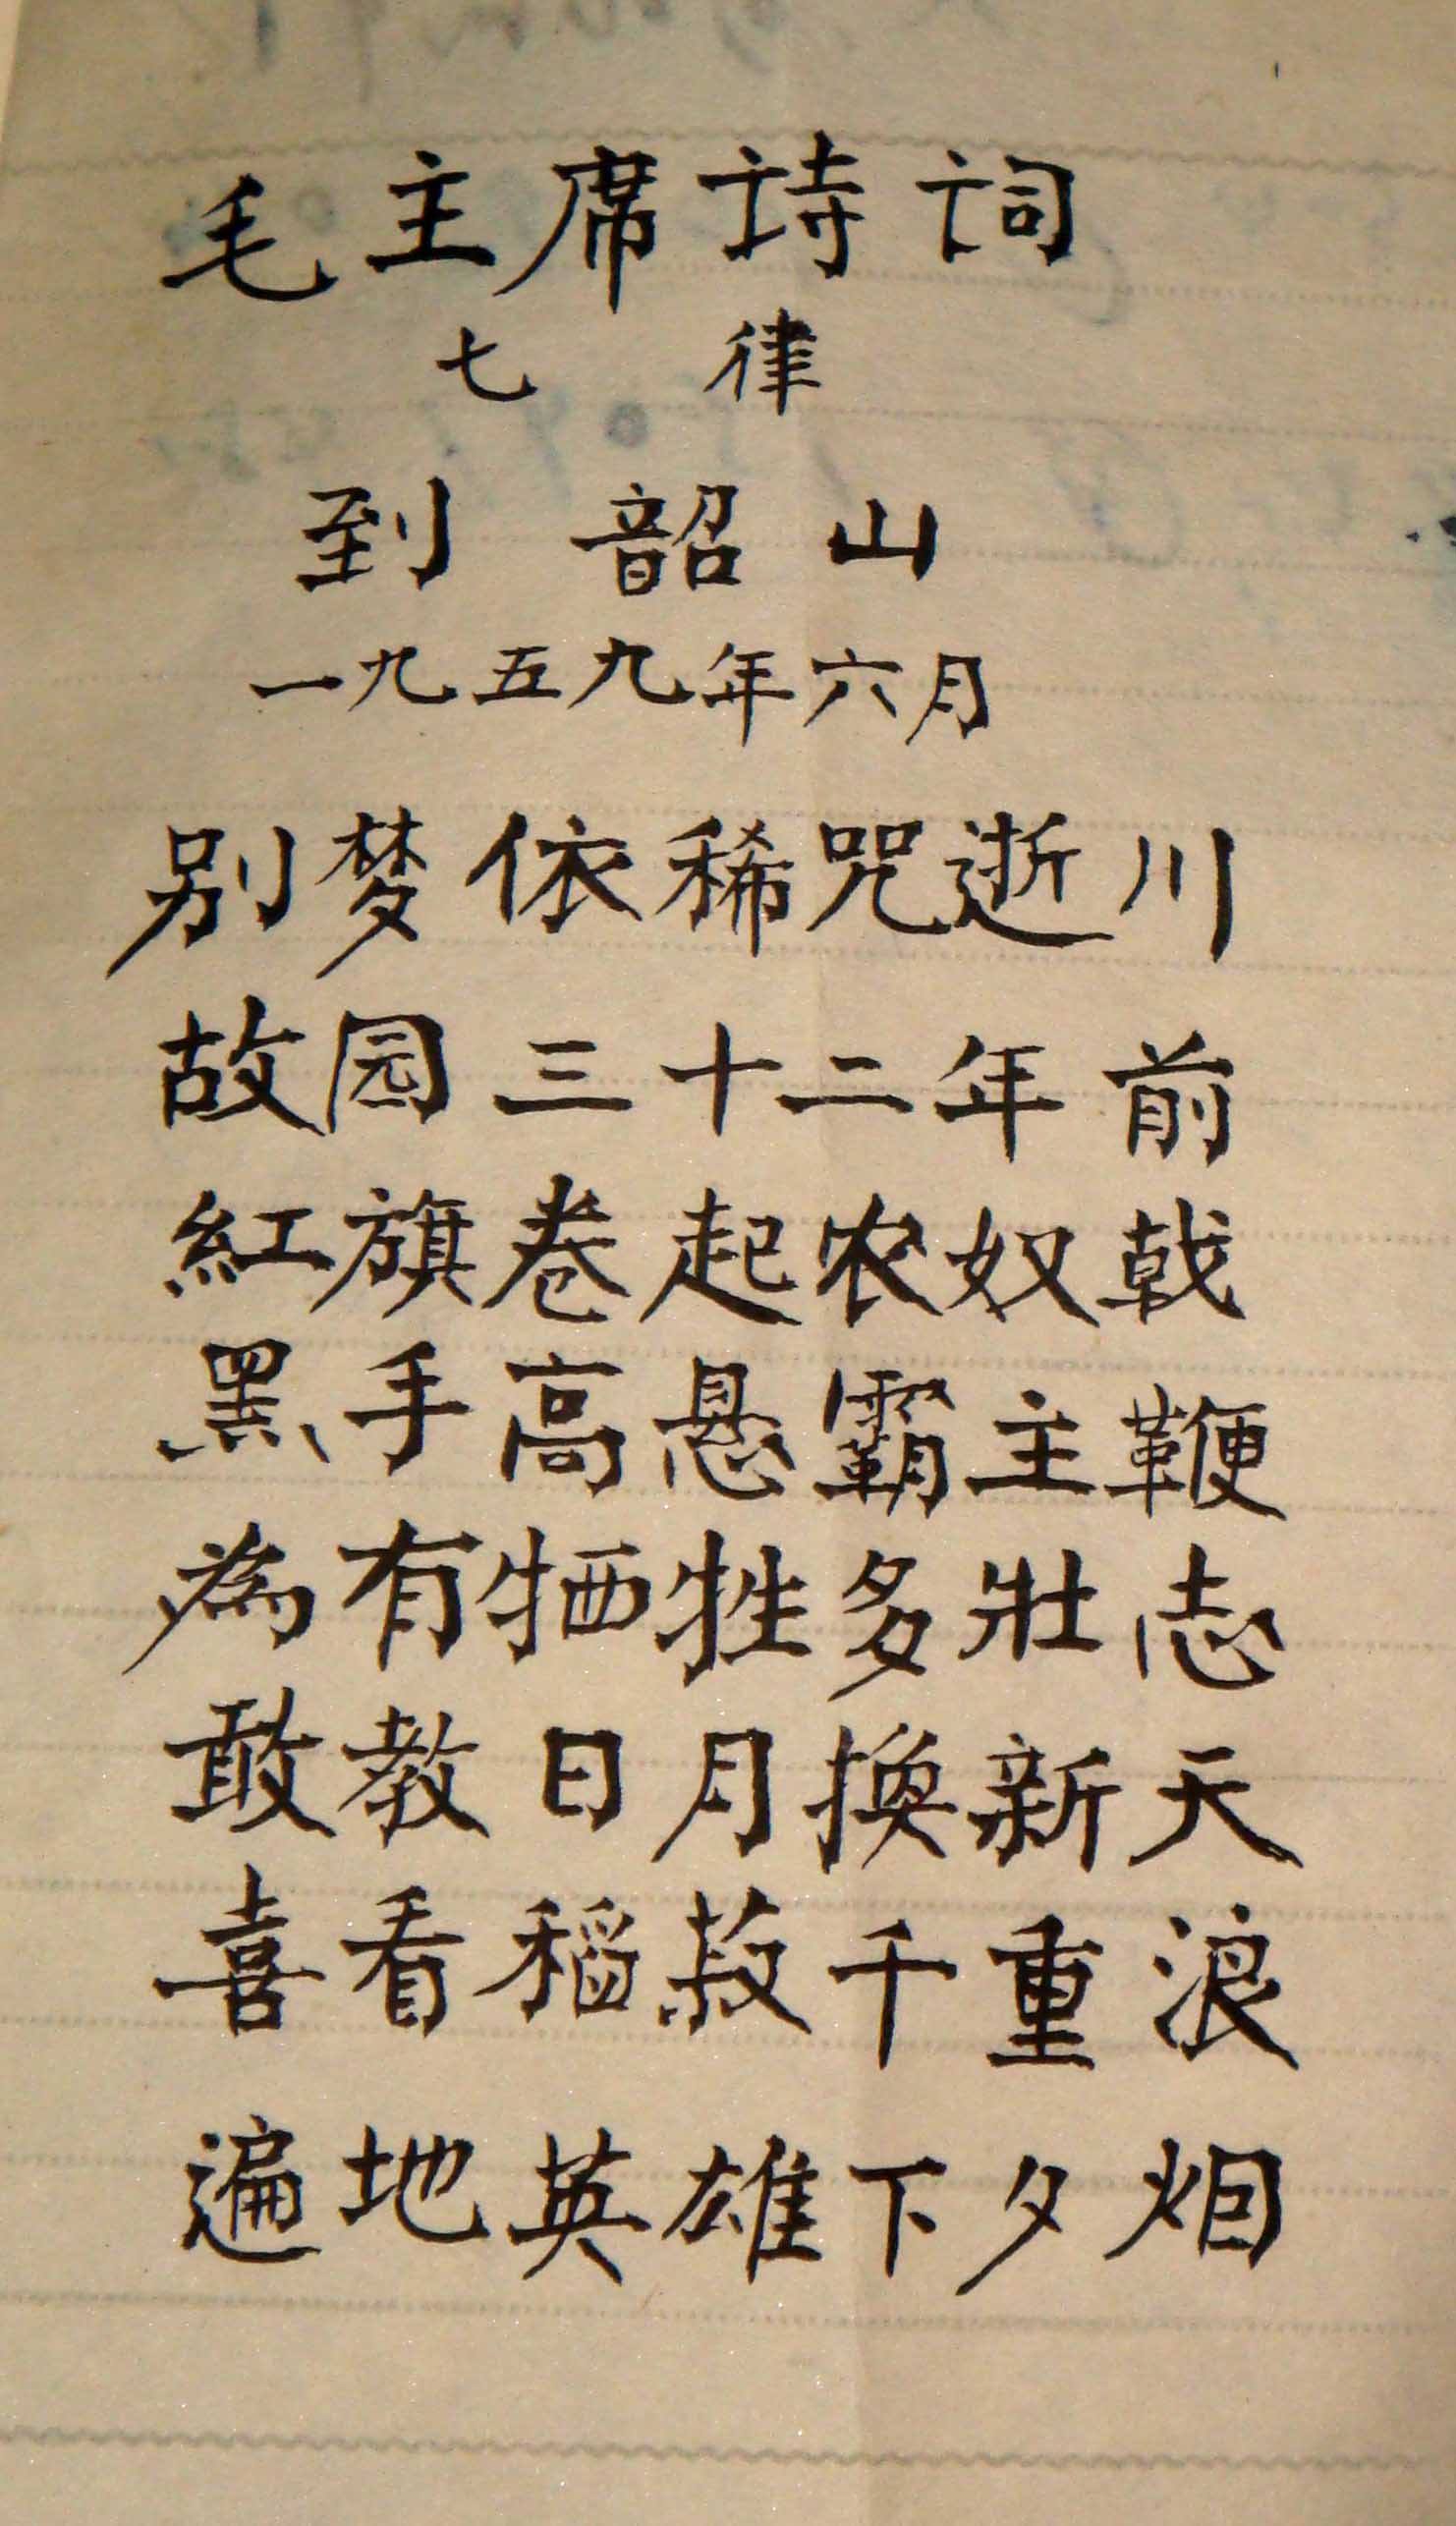 毛主席詩词
七律
到韶山
一九五九年六月
别梦依稀咒逝川
故园三十二年前
紅旗卷起农奴戟
黑手高悬霸主鞭
為有牺牲多壮志
敢教日月换新天
喜看稻菽千重浪
遍地英雄下夕烟